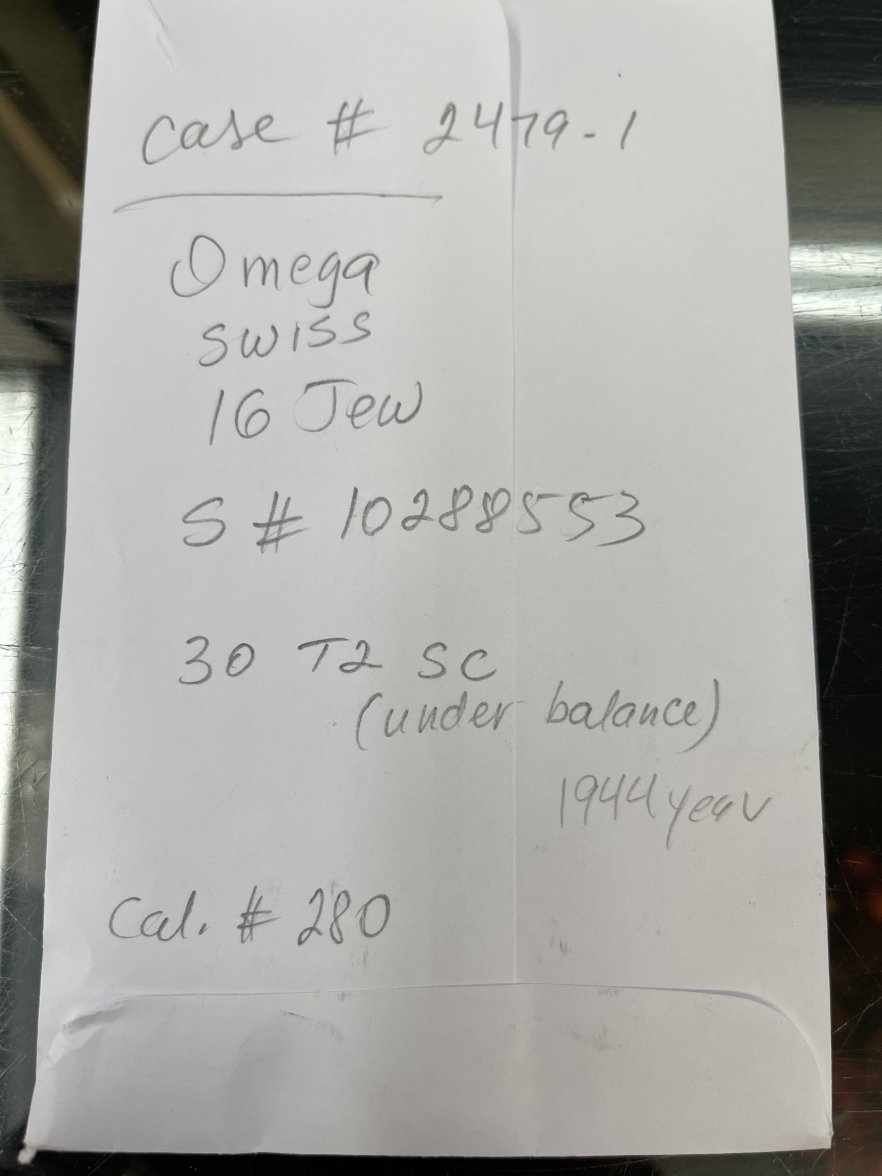 Case # 2479-1
Omega
SWISS
16 Jew
S # 10288553
30 T2 SC
(under balance)
1944 year
Cal. # 280